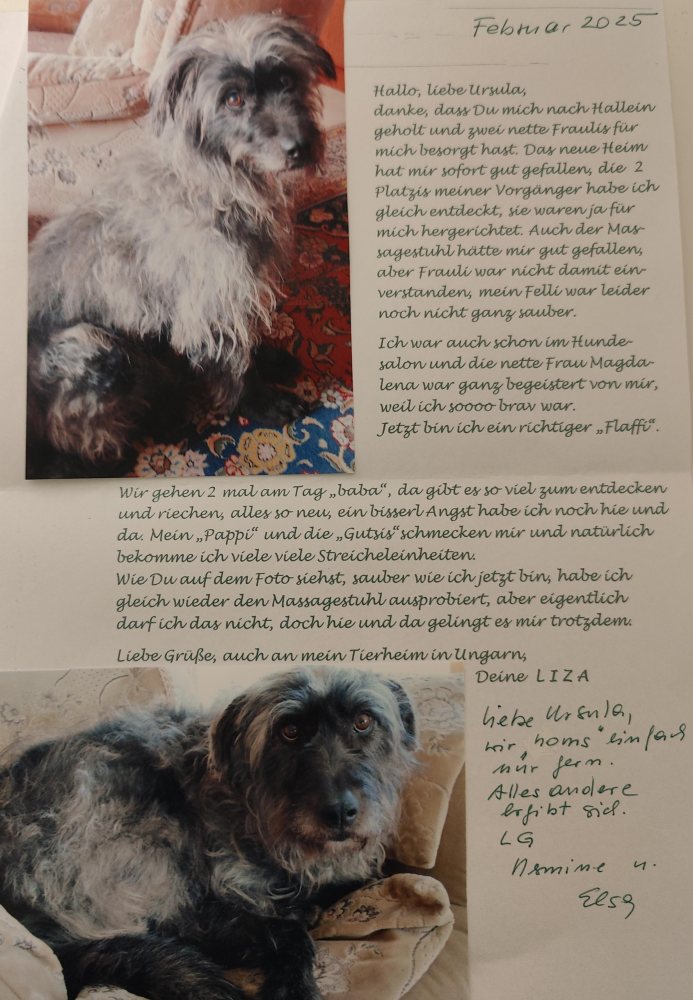 Februar 2025
Hallo, liebe Ursula,
danke, dass Du mich nach Hallein
geholt und zwei nette Fraulis für
mich besorgt hast. Das neue Heim
hat mir sofort gut gefallen, die 2
Platzis meiner Vorgänger habe ich
gleich entdeckt, sie waren ja für
mich hergerichtet. Auch der Mas-
sagestuhl hätte mir gut gefallen,
aber Frauli war nicht damit ein-
verstanden, mein Felli war leider
noch nicht ganz sauber.
Ich war auch schon im Hunde-
salon und die nette Frau Magda-
lena war ganz begeistert von mir,
weil ich soooo brav war.
Jetzt bin ich ein richtiger „Flaffi“.
Wir gehen 2 mal am Tag „baba“, da gibt es so viel zum entdecken
und riechen, alles so neu, ein bisserl Angst habe ich noch hie und
da. Mein „Pappi“ und die „Gutsis“schmecken mir und natürlich
bekomme ich viele viele Streicheleinheiten.
Wie Du auf dem Foto siehst, sauber wie ich jetzt bin, habe ich
gleich wieder den Massagestuhl ausprobiert, aber eigentlich
darf ich das nicht, doch hie und da gelingt es mir trotzdem.
Liebe Grüße, auch an mein Tierheim in Ungarn,
Deine L I Z A
Liebe Ursula,
wir „homs“ einfach
nur gern.
Alles andere
ergibt sich.
LG
u.
Elsa